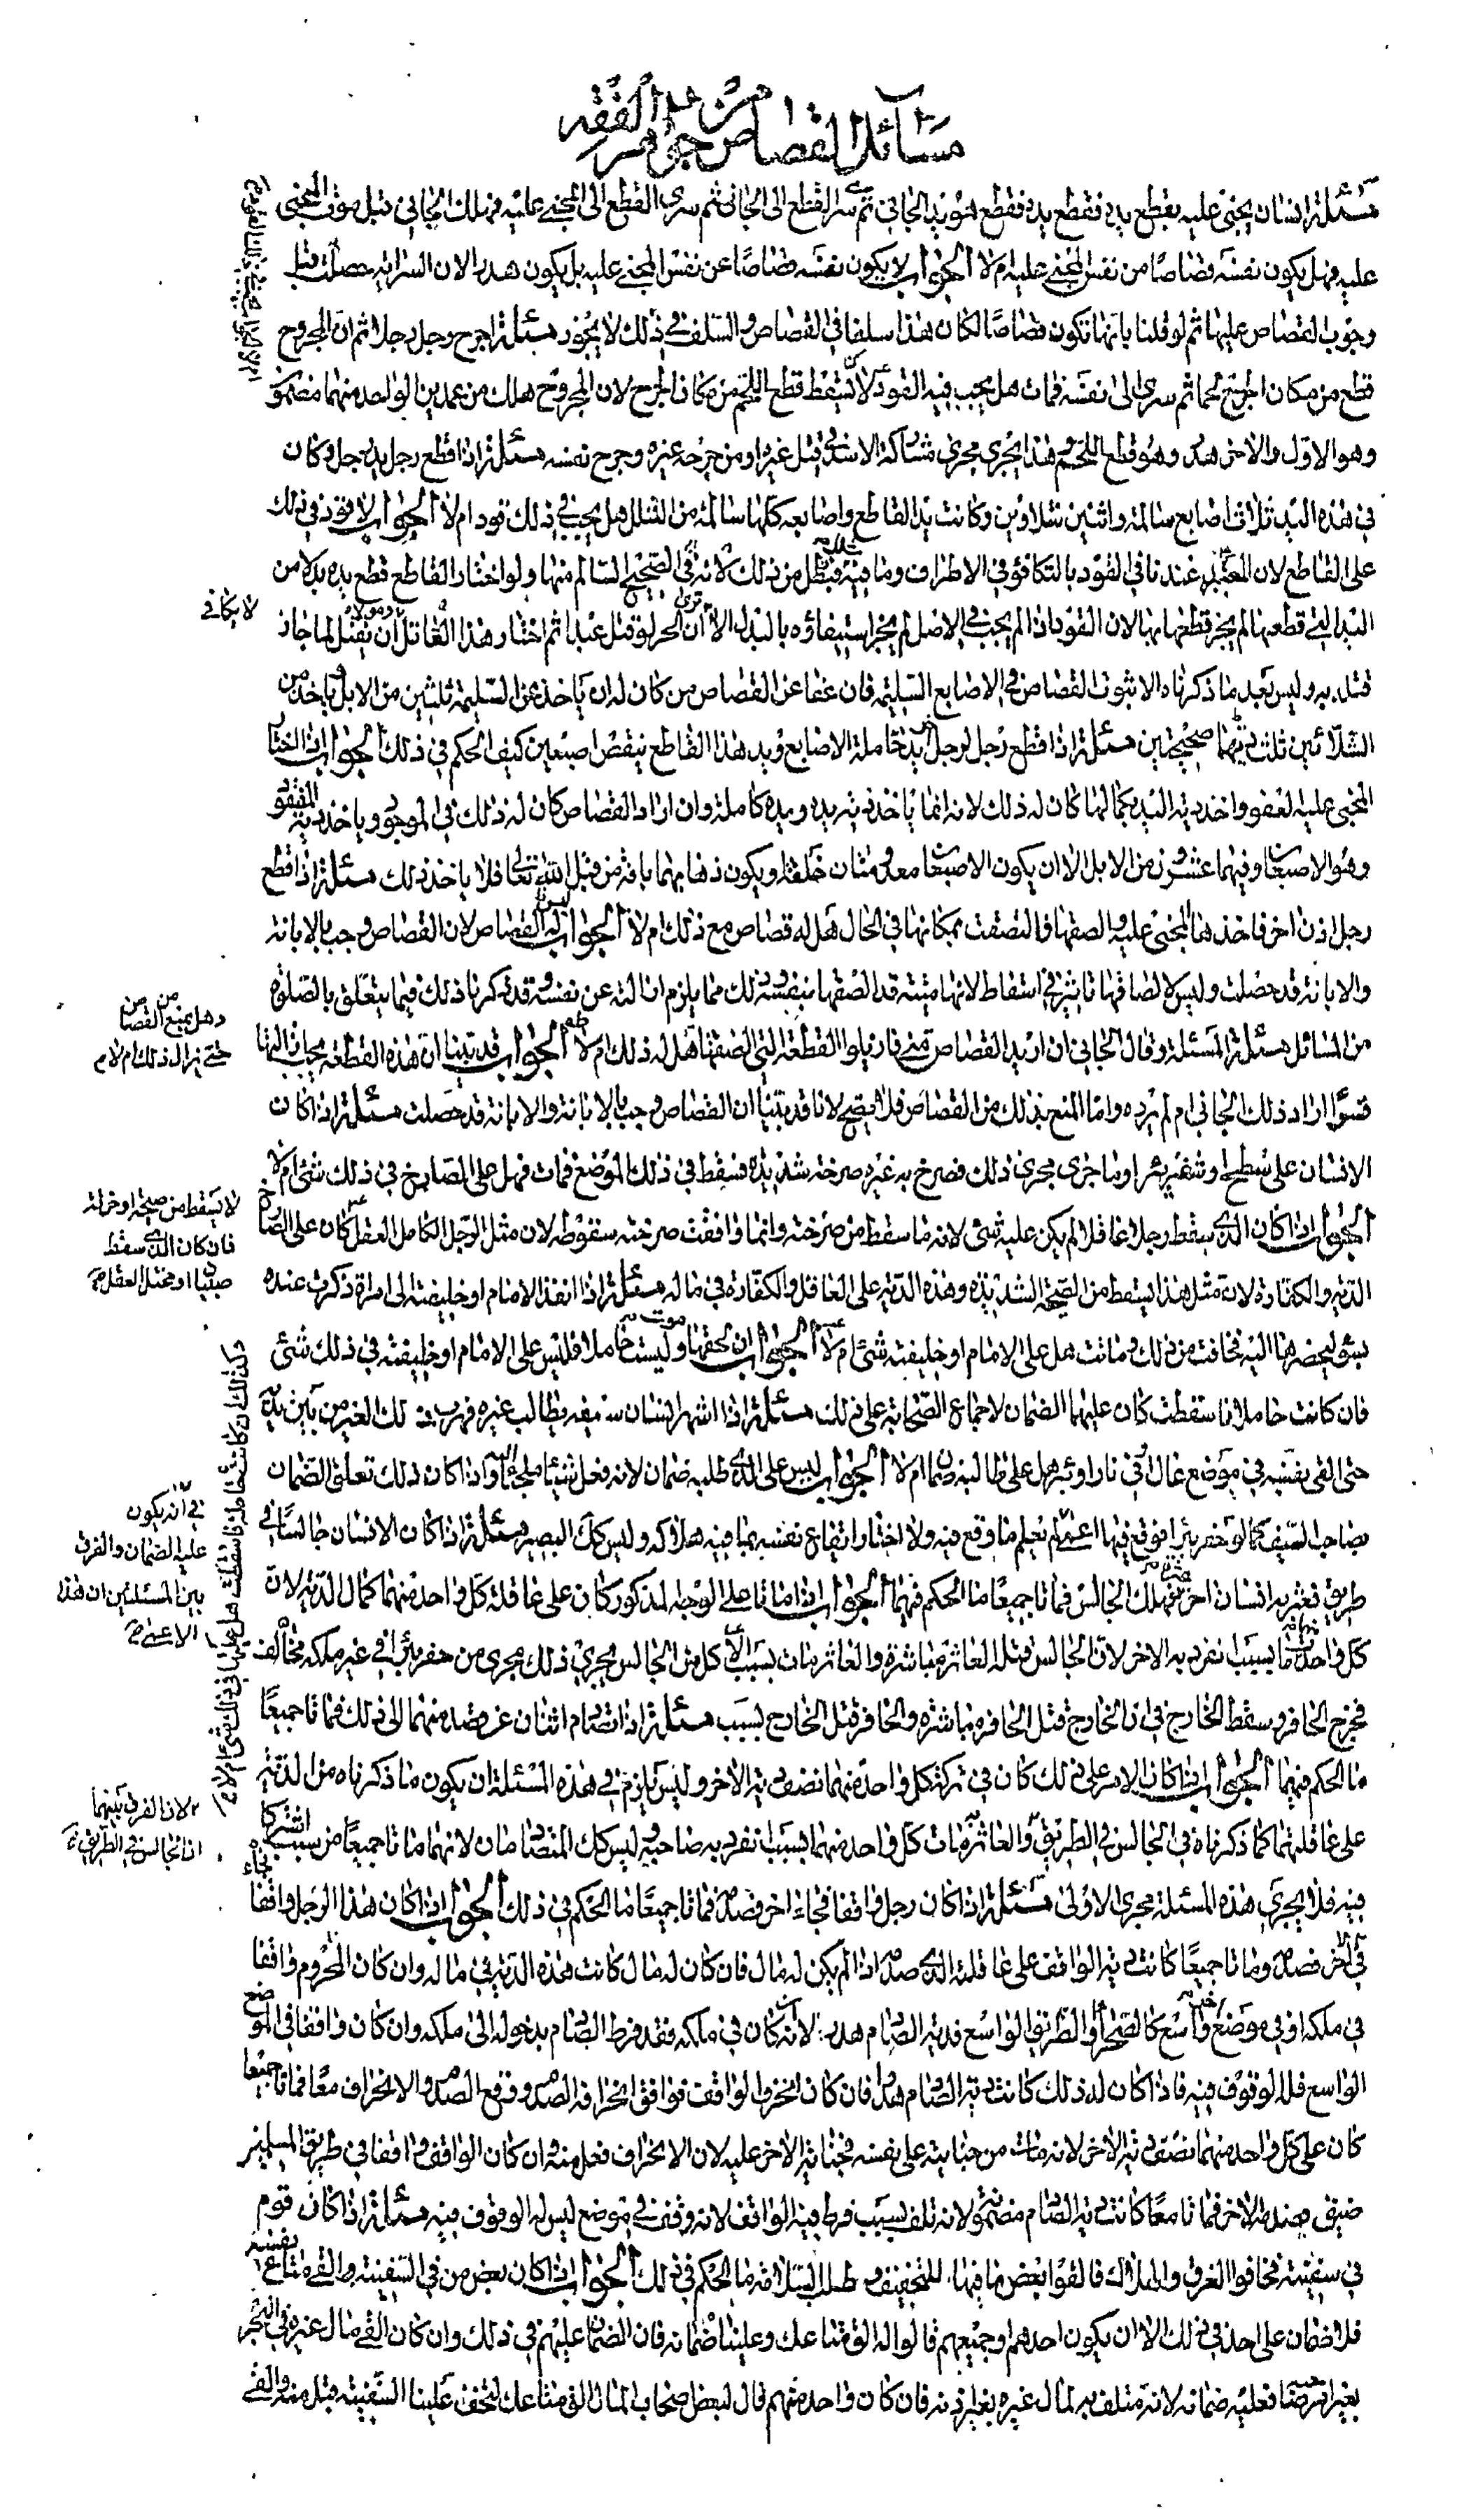 مسائل القصاص من جواهر الفقه
مسئلة انسان يجنى عليه بقطع يده فقطع يده فقطع هو يد الجاني ثم سرى القطع الى الجاني ثم سرى القطع الى المجني عليه فهلك الجاني قبل موت المجنى
عليه فهل يكون نفسه قصاصا من نفس المجني عليه ام لا الجواب لا يكون نفسه قصاصا عن نفس المجني عليه بل يكون هدرا لان السراية حصلت قبل
وجوب القصاص عليها ثم لو قلنا بانها تكون قصاصا لكان هذا سلفا في القصاص والسلف في ذلك لا يجوز مسئلة اجرح رجل رجلا ثم ان المجروح
قطع من مكان الجرح لحما ثم سرى الى نفسه فمات هل يجب فيه القود ام لا يسقط قطع اللحم من مكان الجرح لان المجروح هلك من عمدين الواحد منهما مضمون
وهو الاول والاخر هدر وهو قطع اللحم وهذا يجري مجرى مشاركة الانسان في قتل غيره او من جرحه غيره وجرح نفسه مسئلة اذا قطع رجل يد رجل وكان
في هذه اليد ثلاث اصابع سالمة واثنين شلاوين وكانت يد القاطع واصابعه كلها سالمة من الشلل هل يجب في ذلك قود ام لا الجواب لا قود في ذلك
على القاطع لان المعتبر عندنا في القود بالتكافؤ في الاطراف وما فيه شلل من ذلك لا يكافي الصحيح السالم منها ولو اختار القاطع قطع يده بدلا من
اليد التي قطعها لم يجز قطعها بها لان القود اذا لم يجب في الاصل لم يجز استيفاؤه بالبدل الا ترى ان الحر لو قتل عبدا ثم اختار هذا القاتل ان يقتل لما جاز
قتله به وليس بعد ما ذكرناه الا ثبوت القصاص في الاصابع السليمة فان عفا عن القصاص من كان له ان ياخذ عن السليمة ثلثين من الابل وياخذ من
الشلائين ثلث ديتها صحيحتين مسئلة اذا قطع رجل لرجل يد كاملة الاصابع ويد هذا القاطع ينقص اصبعين كيف الحكم في ذلك الجواب اذا اختار
المجنى عليه العفو واخذ دية اليد بكمالها كان له ذلك لانه انما ياخذ دية يده ويده كاملة وان اراد القصاص كان له ذلك في الموجود وياخذ دية المفقود
وهو الاصبعان وفيهما عشرون من الابل الا ان يكون الاصبعان معدومتان خلقة ويكون ذهابهما بافة من قبل الله تعالى فلا ياخذ ذلك مسئلة اذا قطع
رجل اذن اخر فاخذها المجنى عليه والصقها فالتصقت بمكانها في الحال هل له قصاص مع ذلك ام لا الجواب له القصاص لان القصاص وجب بالابانة
والابانة قد حصلت وليس لالصاقها تاثير في اسقاط لانها ميتة قد الصقها بنفسه وذلك مما يلزم ازالته عن نفسه وقد ذكرنا ذلك فيما يتعلق بالصلوة
من المسائل مسئلة المسئلة وقال الجاني ان اريد القصاص مني فازيلوا القطعة التي الصقها هل له ذلك ام لا الجواب قد بينا ان هذه القطعة يجب ازالتها
وهل يمنع القصاص من
حتى يزال ذلك ام لا
فسواء اراد ذلك الجاني ام لم يرده واما المنع بذلك من القصاص فلا يصح لانا قد بينا ان القصاص وجب بالابانة والابانة قد حصلت مسئلة اذا كان
الانسان على سطح او شفير بئر او ما جرى مجرى ذلك فصرخ به غيره صرخة شديدة فسقط في ذلك الموضع فمات فهل على الصارخ في ذلك شئ ام لا
الجواب اذا كان الذي سقط رجلا عاقلا لم يكن عليه شئ لانه ما سقط من صرخته وانما وافقت صرخته سقوطه لان مثل الرجل الكامل العقل
لا يسقط من صيحة او خرلة
فان كان الذي سقط
صبيا او مختل العقل
كان على الصارخ
الدية والكفارة لان مثل هذا يسقط من الصيحة الشديدة وهذه الدية على العاقلة والكفارة في ماله مسئلة اذا انفذ الامام او خليفته الى امراة ذكرت عنده
بسوء ليحضرها اليه فخافت من ذلك وماتت هل على الامام او خليفته شئ ام لا الجواب ان لحقها موت وليست حاملا فليس على الامام او خليفته في ذلك شئ
وكذلك ان كانت حاملة فاسقطت هل عليهما في ذلك شئ ام لا
فان كانت حاملا فاسقطت كان عليهما الضمان لاجماع الصحابة على ذلك مسئلة اذا اشهر انسان سيفه يطالب غيره فهرب ذلك الغير من بين يديه
حتى القى نفسه في موضع عال او في نار او بئر هل على طالبه ضمان ام لا الجواب ليس على الذي طلبه ضمان لانه فعل شيئا ملجئا واذا كان ذلك تعلق الضمان
في انه يكون
عليه الضمان والفرق
بين المسئلتين ان هذا
الاعمى
بصاحب السيف كما لو حفر بئرا فوقع فيها اعمى لم يعلم ما وقع فيه ولا اختار ايقاع نفسه بما فيه هلاكه وليس كك البصير مسئلة اذا كان الانسان جالسا في
طريق فعثر به انسان اخر فهلك الجالس فماتا جميعا ما الحكم فيهما الجواب اذا ماتا على الوجه المذكور كان على عاقلة كل واحد منهما كمال الدية لان
كل واحد منهما مات بسبب انفرد به الاخر لان الجالس قتله العاثر مباشرة والعاثر مات بسبب الجالس يجري ذلك مجرى من حفر بئرا في غير ملكه
فجرح الحافر وسقط الجارح في ان الجارح قتل الحافر مباشرة والحافر قتل الجارح بسبب مسئلة اذا اصطدم اثنان عن قصد منهما الى ذلك فماتا جميعا
ما الحكم فيهما الجواب اذا كان الامر على ذلك كان في تركة كل واحد منهما نصف دية الاخر وليس يلزم في هذه المسئلة ان يكون ما ذكرناه من الدية
لان الفرق بينهما
ان الجالس في الطريق
على عاقلتهما كما ذكرناه في الجالس في الطريق والعاثر مات كل واحد منهما بسبب انفرد به صاحبه وليس كك المتصادمان لانهما ماتا جميعا من سبب اشتركا
فيه فلا يجري هذه المسئلة مجرى الاولى مسئلة اذا كان رجل واقفا فجاء اخر فصدمه فماتا جميعا ما الحكم في ذلك الجواب اذا كان هذا الرجل واقفا
فجاء اخر فصدمه وماتا جميعا كانت دية الواقف على عاقلة الذي صدمه اذا لم يكن له مال فان كان له مال كانت هذه الدية في ماله وان كان المصدوم واقفا
في ملكه او في موضع واسع كالصحراء والطريق الواسع فدية الصادم هدر لانه كان في ملكه فقد فرط الصادم بدخوله الى ملكه وان كان واقفا في الموضع
الواسع فله الوقوف فيه فاذا كان له ذلك كانت دية الصادم هدرا فان كان انحرف الواقف فوافق انحرافه الصدم ووقع الصدم والانحراف معا فماتا جميعا
كان على كل واحد منهما نصف دية الاخر لانه مات من جنايته على نفسه وجناية الاخر عليه لان الانحراف فعل منه وان كان الواقف واقفا في طريق المسلمين
ضيق فصدمه الاخر فماتا معا كانت دية الصادم مضمونة لانه تلف بسبب فرط فيه الواقف لانه وقف في موضع ليس له الوقوف فيه مسئلة اذا كان قوم
في سفينة فخافوا الغرق والهلاك فالقوا بعض ما فيها للتخفيف وطلب السلامة ما الحكم في ذلك الجواب اذا كان بعض من في السفينة القى متاع نفسه
فلا ضمان على احد في ذلك الا ان يكون احدهم او جميعهم قالوا له الق متاعك وعلينا ضمانه فان الضمان عليهم في ذلك وان كان القى مال غيره في البحر
بغير امره فعليه ضمانه لانه متلف لمال غيره بغير اذنه فان كان واحد منهم قال لبعض اصحاب المتاع الق متاعك لتخف علينا السفينة فقبل منه والقى